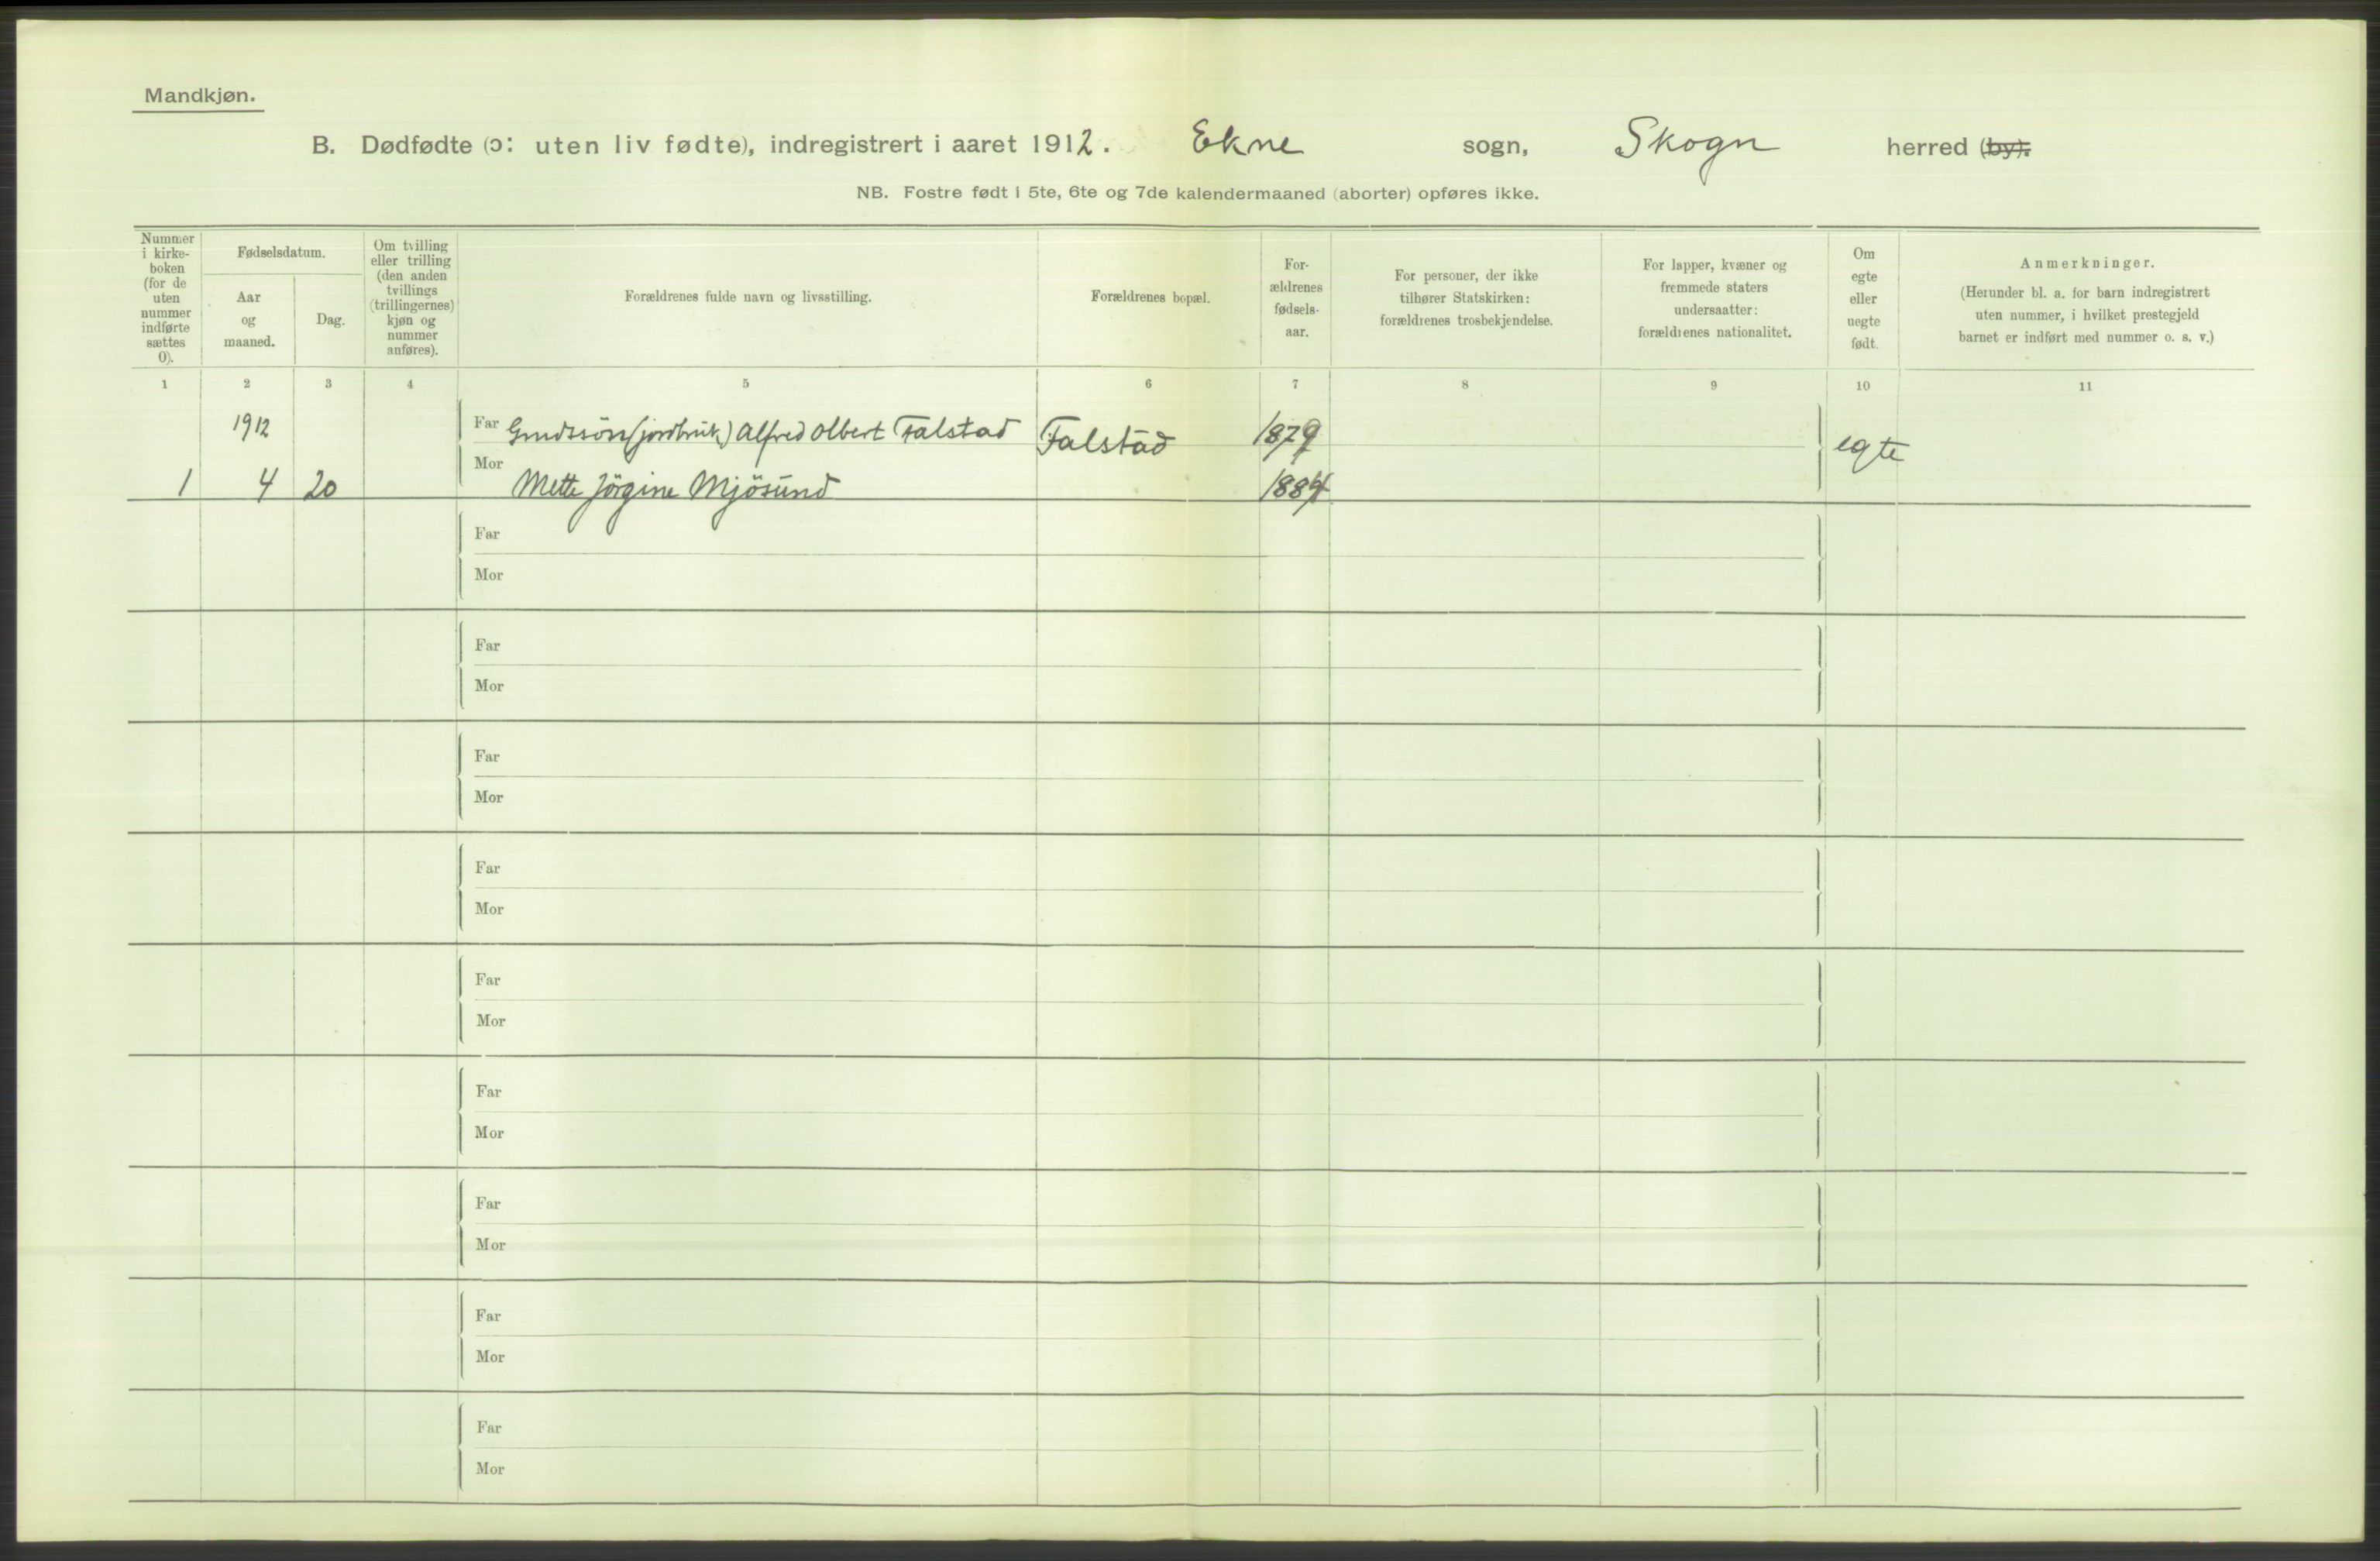 Mandkjøn.
B. Dødfødte (ɔ: uten liv fødte), indregistrert i aaret 1912. Ekne sogn, Skogn herred (by).
NB. Fostre født i 5te, 6te og 7de kalendermaaned (aborter) opføres ikke.
Nummer
i kirke-
boken
(for de
uten
nummer
indførte
sættes
0).
Fødselsdatum.
Aar
og
maaned.
Dag.
Om tvilling
eller trilling
(den anden
tvillings
(trillingernes)
kjøn og
nummer
anføres).
Forældrenes fulde navn og livsstilling.
Forældrenes bopæl.
For-
ældrenes
fødsels-
aar.
For personer, der ikke
tilhører Statskirken:
forældrenes trosbekjendelse.
For lapper, kvæner og
fremmede staters
undersaatter:
forældrenes nationalitet.
Om
egte
eller
uegte
født.
Anmerkninger.
(Herunder bl. a. for barn indregistrert
uten nummer, i hvilket prestegjeld
barnet er indført med nummer o. s. v.)
1 2 3 4 5 6 7 8 9 10 11
1912 Far (jordbruk) Alfred Olbert Falstad Falstad 1879 egte
Mor
1 4 20 Mette Jörgine Mjösund 1884
Far
Mor
Far
Mor
Far
Mor
Far
Mor
Far
Mor
Far
Mor
Far
Mor
Far
Mor
Far
Mor